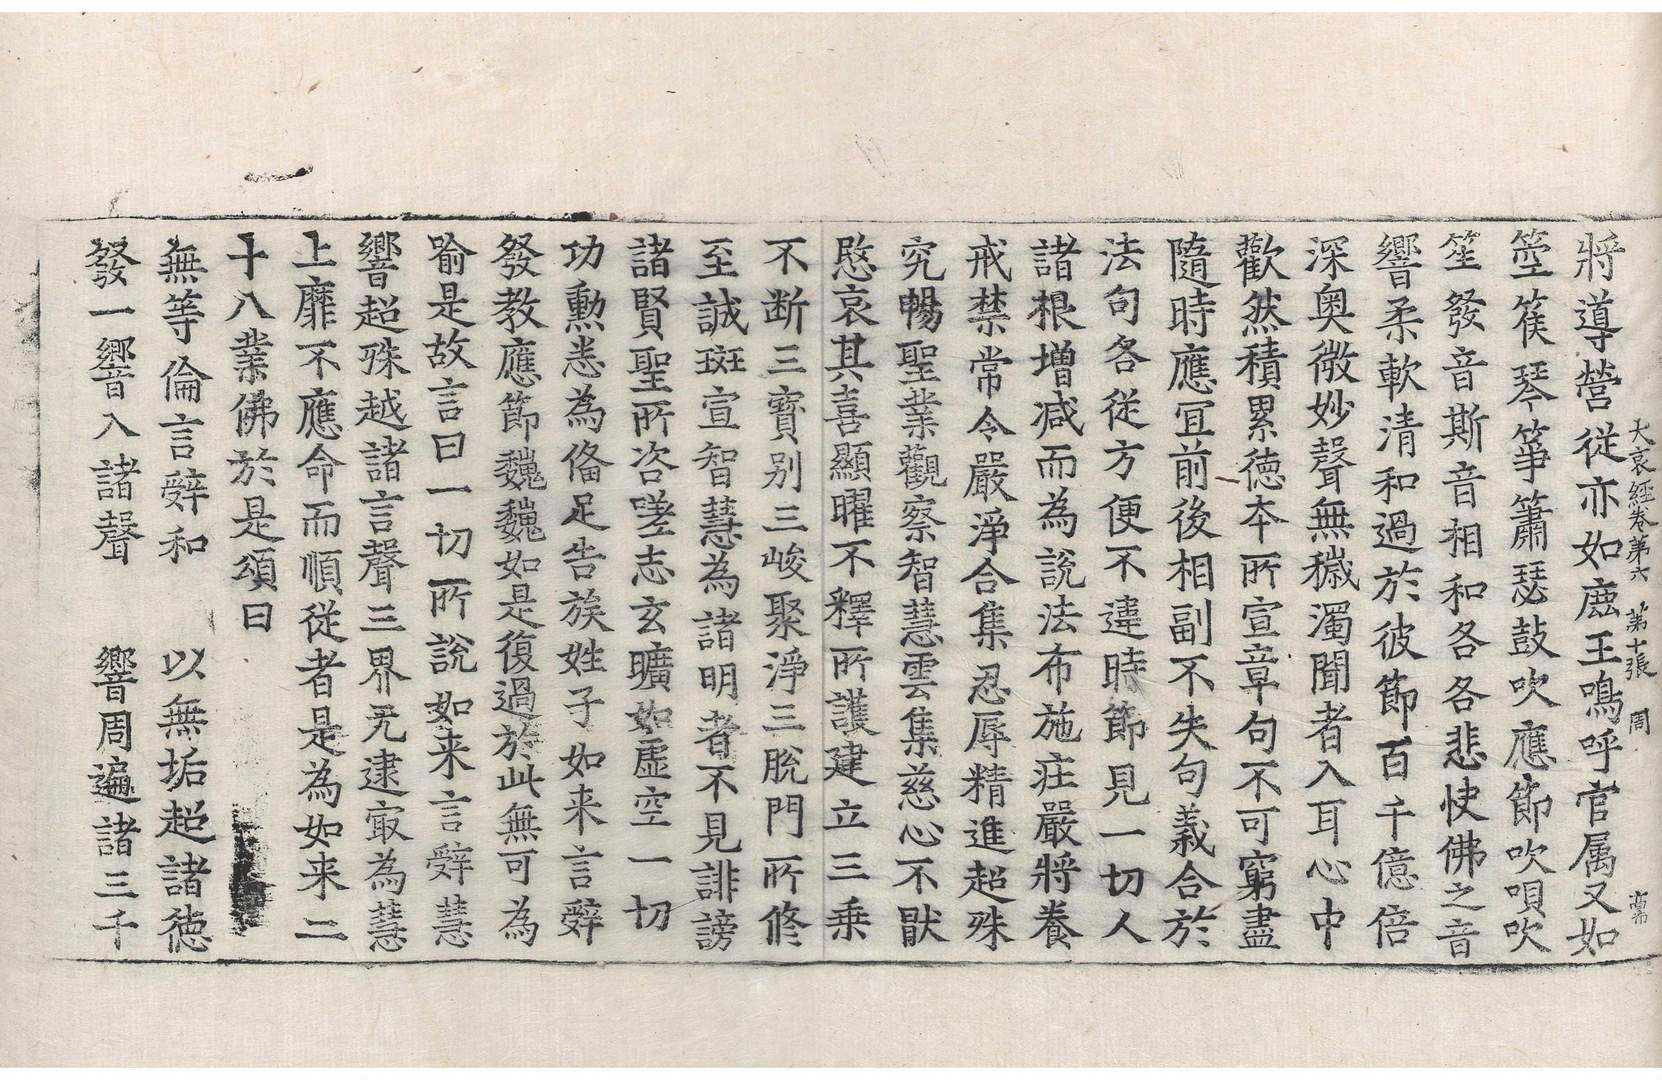 大哀經卷第六　第十張　周
將導營從亦如鹿王鳴呼官属又如
箜篌琴箏簫瑟鼓吹應節吹唄吹
笙發音斯音相和各各悲快佛之音
響柔軟清和過於彼節百千億倍
深奥微妙聲無穢濁聞者入耳心中
歡然積累徳夲所宣章句不可窮盡
隨時應冝前後相副不失句義合於
法句各從方便不違時節見一切人
諸根增减而為說法布施莊嚴將養
戒禁常令嚴淨合集忍辱精進超殊
究暢聖業觀察智慧雲集慈心不猒
愍哀其喜顯曜不釋所護建立三乗
不断三寳别三峻聚淨三脫門所修
至誠斑宣智慧為諸明者不見誹謗
諸賢聖所咨嗟志玄曠如虛空一切
功勳悉為俻足告族姓子如来言辭
發教應節巍巍如是復過於此無可為
喻是故言曰一切所說如来言辭慧
響超殊越諸言聲三界无逮㝡為慧
上靡不應命而順從者是為如来二
十八業佛於是頌曰
無等倫言辭和　以無垢超諸徳
發一響入諸聲　響周遍諸三千